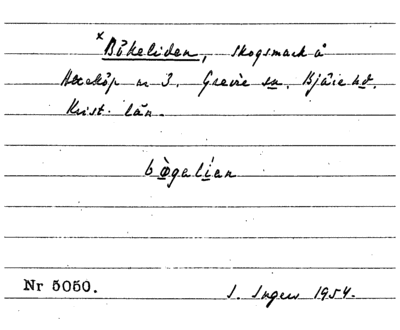 × Bökeliden, skogsmark å
nr 3. Grevie sn. Bjäre hd.
Krist. län.
bø̀galían
Nr 5050.
S. Ingers 1954.